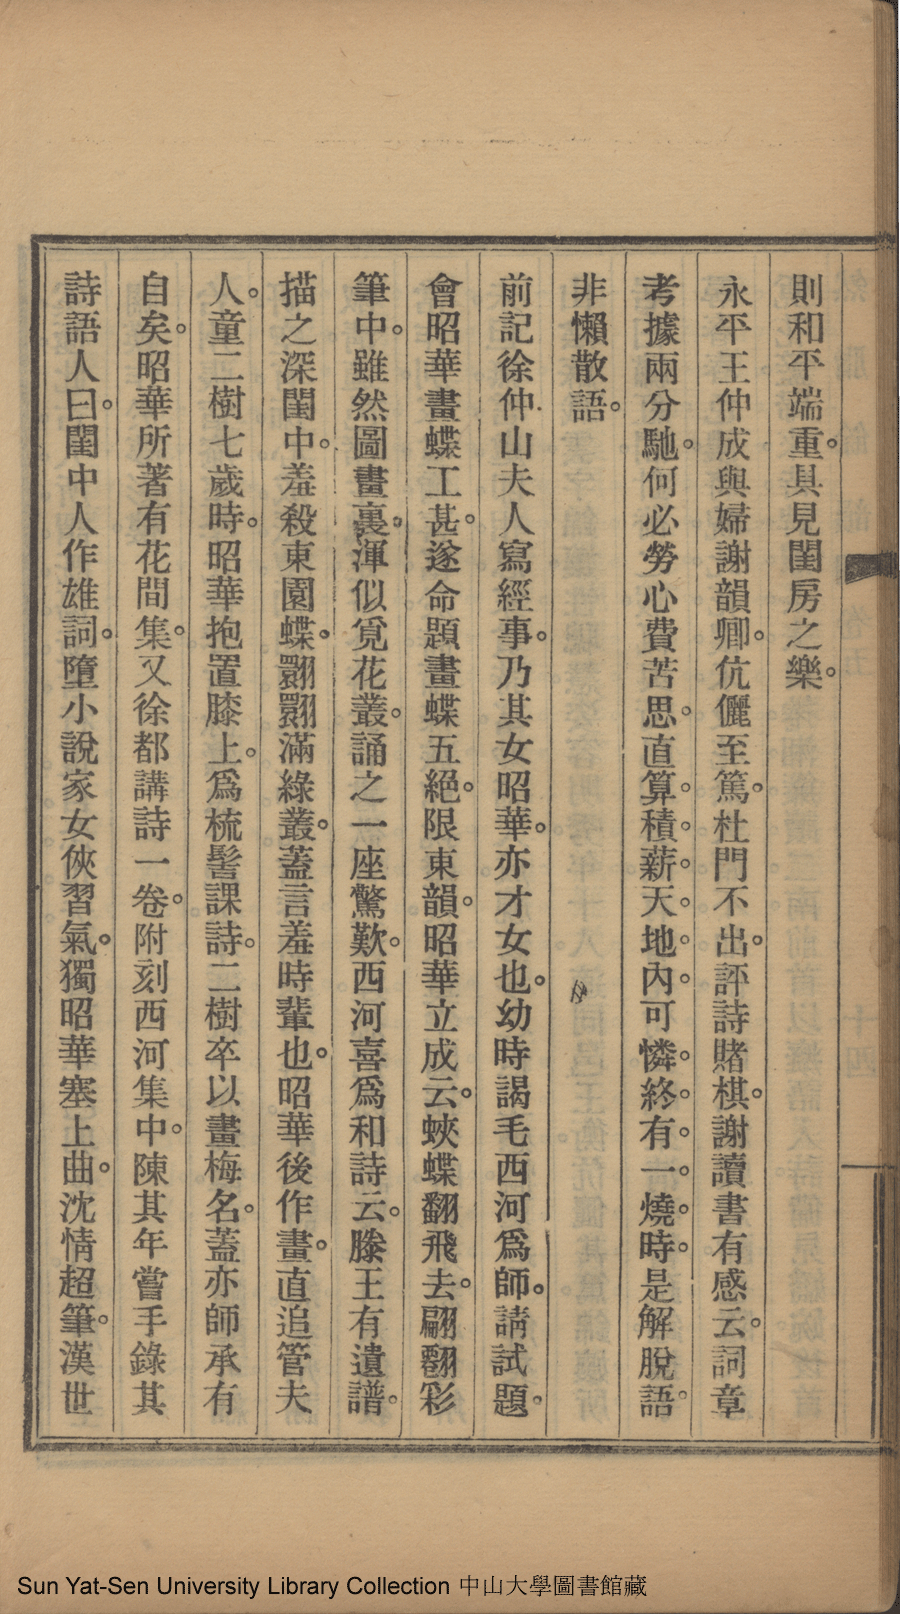 則和平端重。具見閨房之樂。
永平王仲成與婦謝韻卿。伉儷至篤。杜門不出。評詩賭棋。謝讀書有感云。詞章
考據兩分馳。何必勞心費苦思。直算。積。薪。天。地。內。可憐。終。有。一。燒。時。是解脫語。
非懶散語。
前記徐仲山夫人寫經事。乃其女昭華。亦才女也。幼時謁毛西河爲師。請試題。
會昭華畫蝶工甚。遂命題畫蝶五絕。限東韻。昭華立成云。蛺蝶翻飛去。翩翻彩
筆中。雖然圖畫裏。渾似覓花叢。誦之一座驚歎。西河喜爲和詩云。滕王有遺譜。
描之深閨中。羞殺東園蝶。翾翾滿綠叢。蓋言羞時輩也。昭華後作畫。直追管夫
人。童二樹七歲時。昭華抱置膝上。爲梳髻課詩。二樹卒以畫梅名。蓋亦師承有
自矣。昭華所著有花間集。又徐都講詩一卷。附刻西河集中。陳其年嘗手錄其
詩語人曰。閨中人作雄詞。墮小說家女俠習氣。獨昭華塞上曲。沈情超筆。漢世
Sun Yat-Sen University Library Collection 中山大學圖書館藏